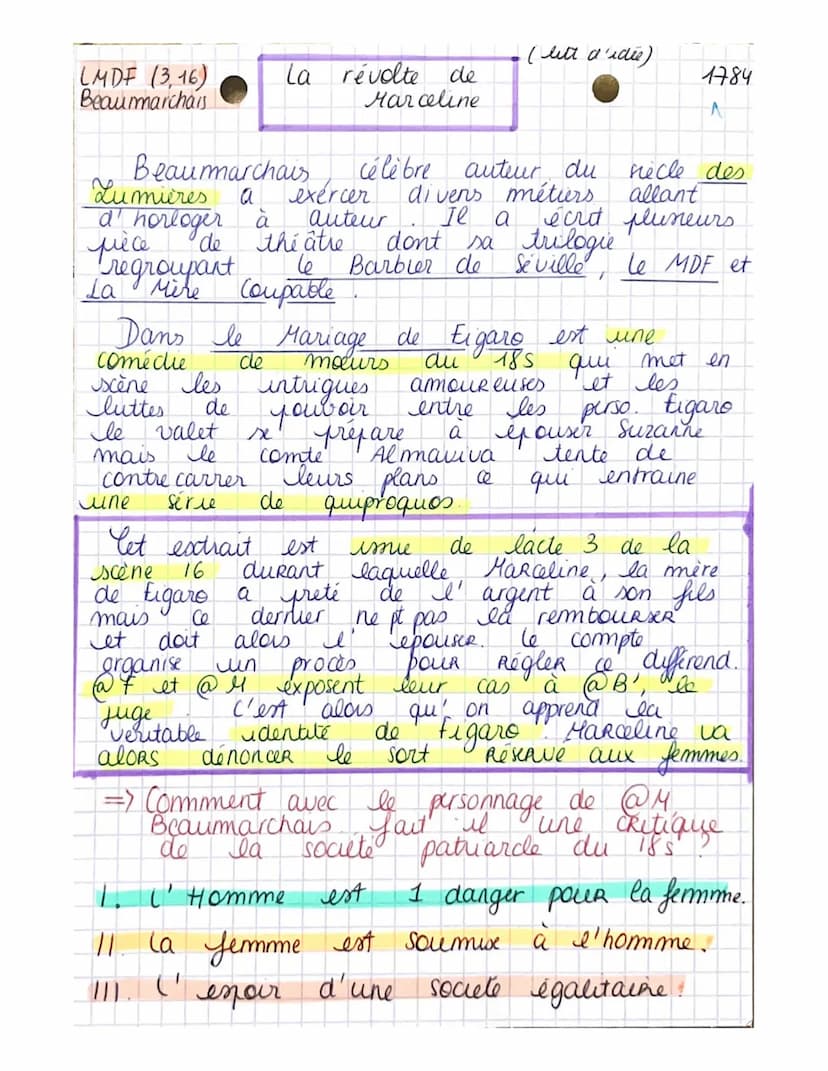 (litt d'idée)
LMDF (3,16)
Beaumarchais
La révolte de
Marceline
1784
Beaumarchais, célèbre auteur du siècle des
Lumières a exercer divers métiers allant
d'horloger à auteur. Il a écrit plusieurs
pièce de théâtre dont sa trilogie
regroupant le Barbier de Séville, le MDF et
La Mère Coupable.
Dans le Mariage de Figaro est une
comédie de mœurs du 18s qui met en
scène les intrigues amoureuses et les
luttes de pouvoir entre les perso. Figaro
le valet se prépare à épouser Suzanne
mais le comte Almaviva tente de
contrecarrer leurs plans ce qui entraine
une série de quiproquos.
Cet extrait est issue de l'acte 3 de la
scène 16 durant laquelle Marceline, la mère
de Figaro a preté de l'argent à son fils
mais ce dernier ne pt pas la rembourser
et doit alors l'épouser. Le compte
organise un procès pour régler ce différend.
@F et @M exposent leur cas à @B', le
juge. C'est alors qu'on apprend la
veritable identité de Figaro. Marceline va
alors dénoncer le sort réservé aux femmes.
=> Comment avec le personnage de @M
Beaumarchais fait il une critique
de la société patriarcle du 18s ?
I. L'Homme est 1 danger pour la femme.
II. La femme est soumise à l'homme.
III. L'espoir d'une societé égalitaire.